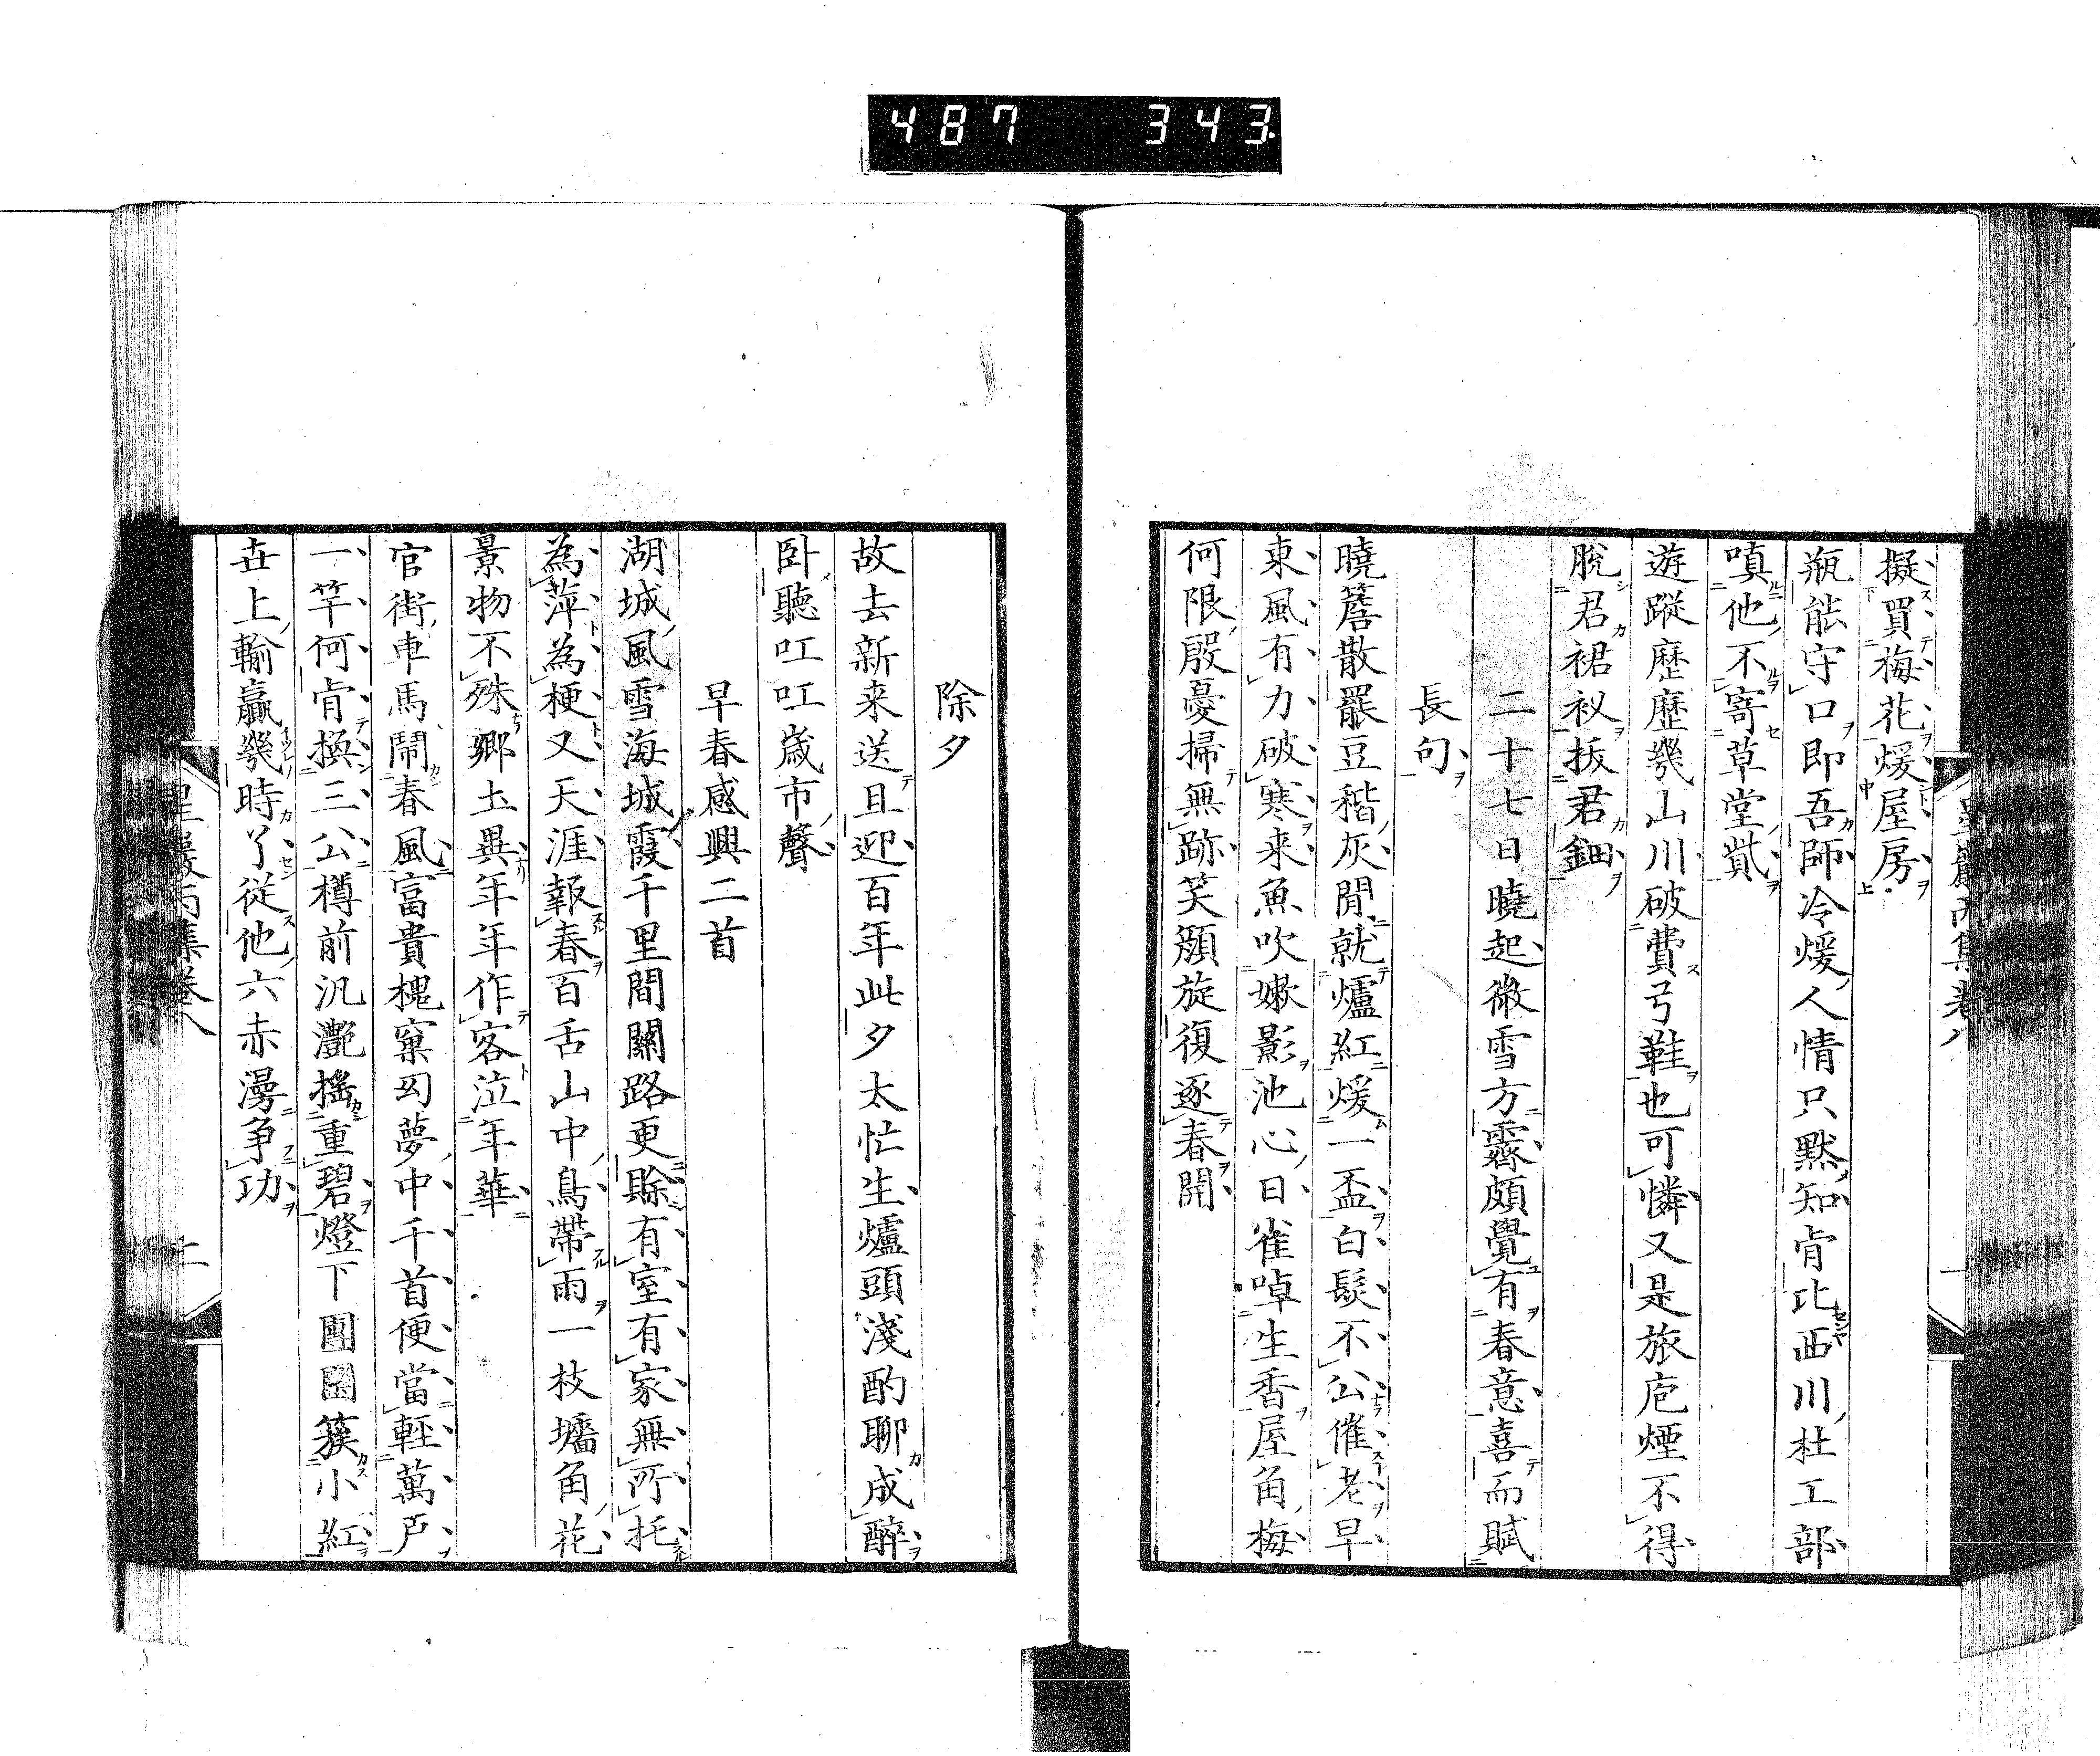 487 343
擬買梅花煖屋房
瓶能守口即吾師冷煖人情只默知肯比西川杜工部
嗔他不寄草堂貲
遊蹤歷歷幾山川破費弓鞋也可憐又是旅庖煙不得
脫君裙衩扳君鈿
二十七日曉起微雪方霽頗覺有春意喜而賦
長句
曉簷散罷豆稭灰閒就爐紅煖一盃白髮不公催老早
東風有力破寒来魚吹嫩影池心日雀啅生香屋角梅
何限殷憂掃無跡笑顏旋復逐春開
除夕
故去新来送且迎百年此夕太忙生爐頭淺酌聊成醉
卧聽吅吅歳市聲
早春感興二首
湖城風雪海城霞千里間關路更賒有室有家無所托
為萍為梗又天涯報春百舌山中鳥帶雨一枝墻角花
景物不殊鄉土異年年作客泣年華
官街車馬鬧春風富貴槐窠幻夢中千首便當輕萬戶
一竿何肯換三公樽前汎灧搖重碧燈下團圞簇小紅
丗上輸贏幾時了従他六赤漫争功
星巖丙集卷八